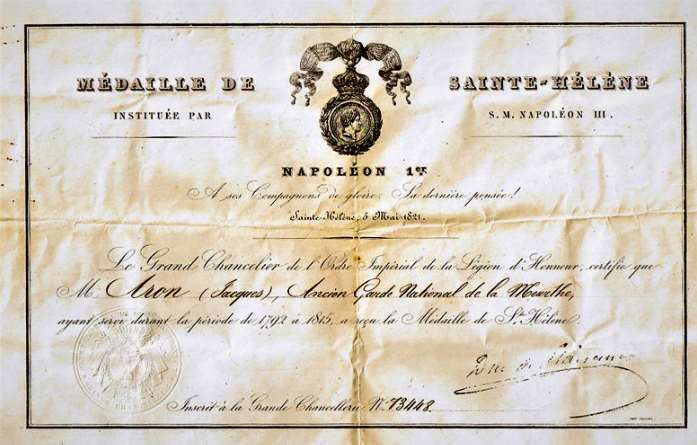 MÉDAILLE DE SAINTE-HÉLÈNE
INSTITUÉE PAR S. M. NAPOLÉON III.
NAPOLÉON 1er.
A ses Compagnons de gloire, Sa dernière pensée!
Sainte-Hélène, 5 Mai 1821.
Le Grand Chancelier de l'Ordre Impérial de la Légion d'Honneur, certifie que
M. Aron (Jacques), Ancien Garde National de la Meurthe,
ayant servi durant la période de 1792 à 1815, a reçu la Médaille de Ste Hélène.
Inscrit à la Grande Chancellerie No. 73448.